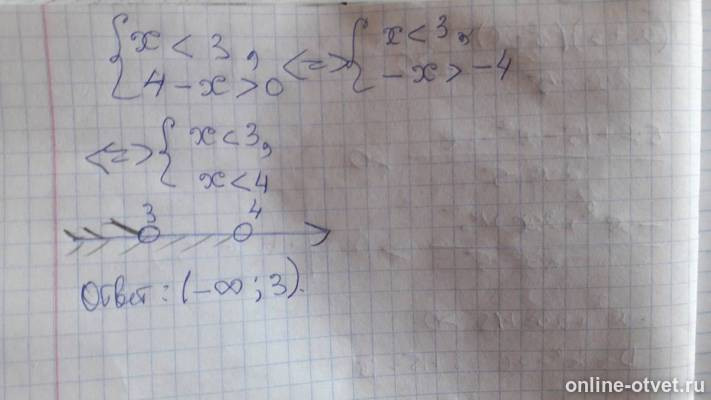 { x < 3, <=> { x < 3,
{ 4 - x > 0 { -x > -4
<=> { x < 3,
{ x < 4
3 4
Ответ: (-∞; 3).
online-otvet.ru